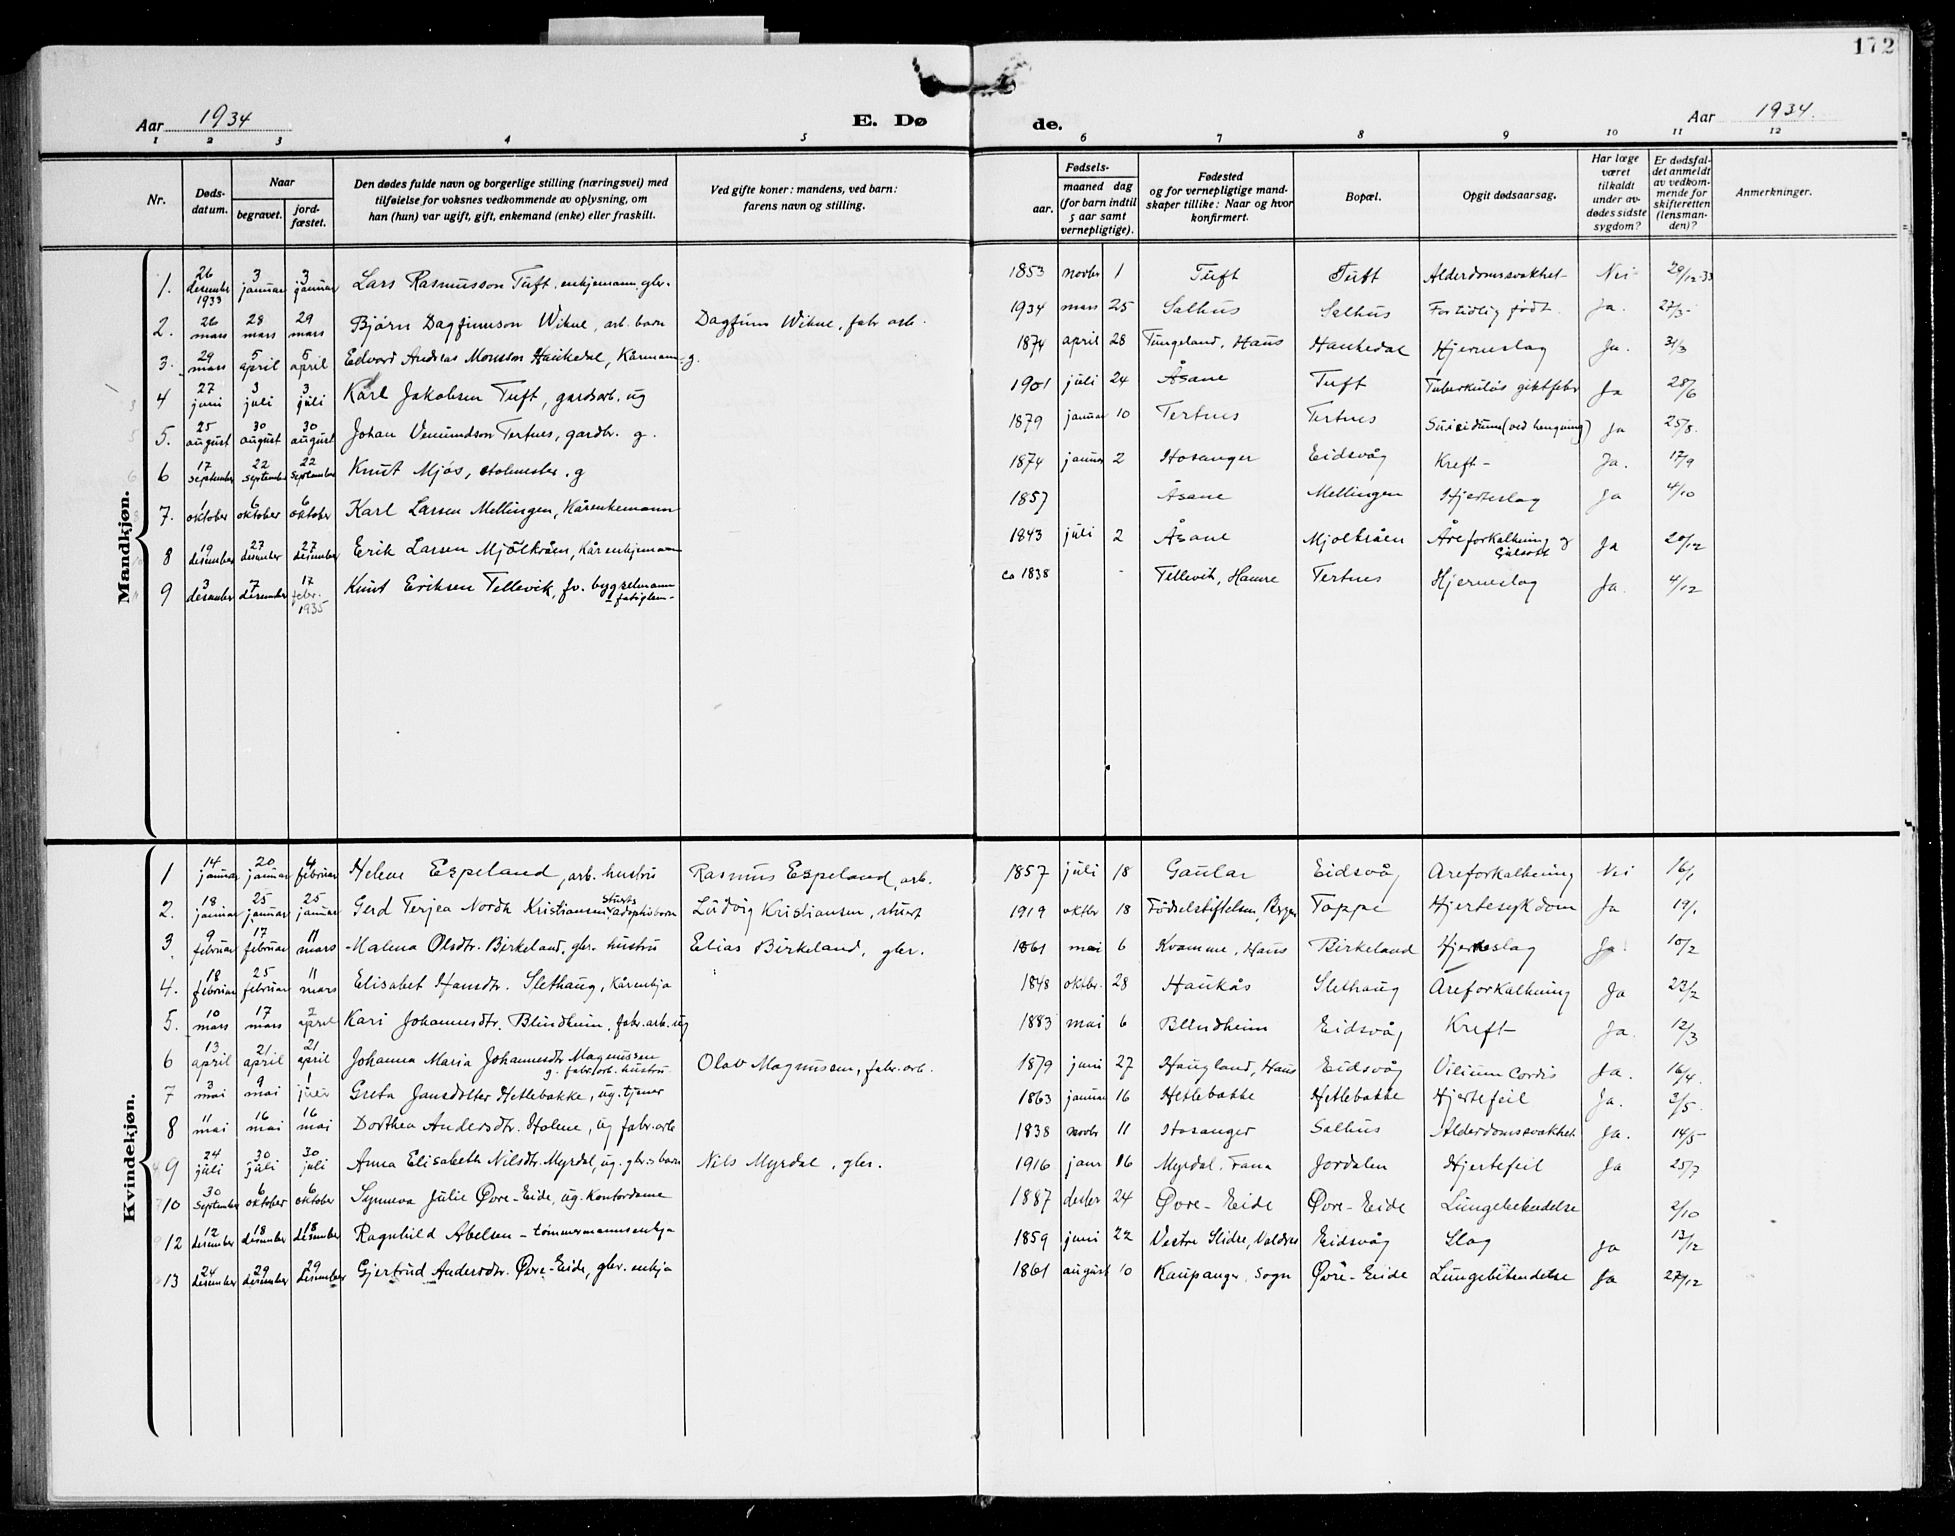 172
Aar 1934 E. Dø de. Aar 1934.
1 2 3 4 5 6 7 8 9 10 11 12
Nr. Døds-datum. Naar begravet. jord-fæstet. Den dødes fulde navn og borgerlige stilling (næringsvei) med tilføielse for voksnes vedkommende av oplysning, om han (hun) var ugift, gift, enkemand (enke) eller fraskilt. Ved gifte koner: mandens, ved barn: farens navn og stilling. Fødsels- aar. maaned dag (for barn indtil 5 aar samt vernepligtige). Fødested og for vernepligtige mand-skaper tillike: Naar og hvor konfirmert. Bopæl. Opgit dødsaarsag. Har læge været tilkaldt under av-dødes sidste sygdom? Er dødsfal-det anmeldt av vedkom-mende for skifteretten (lensman-den)? Anmerkninger.
Mandkjøn.
1. 26 desember 1933 3 januar 3 januar Lars Rasmusson Tuft, enkjemann, gbr. 1853 novbr 1 Tuft Tuft Alderdomssvakhet Nei 29/12-33
2. 26 mars 28 mars 29 mars Bjørn Dagfinnson Wikne, arb. barn Dagfinn Wikne, fabr. arb. 1934 mars 25 Salhus Salhus For tidlig født. Ja. 27/3
3. 29 mars 5 april 5 april Edvard Andreas Monsson Haukedal, Kårmann, g. 1874 april 28 Tungeland, Haus Haukedal Hjerneslag Ja. 31/3
4 27 juni 3 juli 3 juli Karl Jakobsen Tuft, gardsarb. ug 1901 juli 24 Åsane Tuft Tuberkuløs giktfeber Ja 28/6
5. 25 august 30 august 30 august Johan Vemundson Tertnes, gardbr. g. 1879 januar 10 Tertnes Tertnes Suicidium (ved hengning) Ja 25/8.
6 17 september 22 september 22 september Knut Mjøs, stolmester. g 1874 januar 2 Hosanger Eidsvåg Kreft Ja. 17/9
7. 1 oktober 6 oktober 6 oktober Karl Larsen Mellingen, Kårenkemann 1857 Åsane Mellingen Hjerteslag Ja 4/10
8 19 desember 27 desember 27 desember Erik Larsen Mjölkråen, Kårenkjemann 1843 juli 2 Åsane Mjolkråen Åreforkalkning og Gulsott Ja 20/12
9 3 desember 7 desember 17 febr. 1935 Knut Eriksen Tellevik, fv. bygselmann fatiglem 1838 Tellevik, Hamre Tertnes Hjerneslag Ja. 4/12
Kvindekjøn.
1 14 januar 20 januar 4 februar Helene Espeland, arb. hustru Rasmus Espeland, arb. 1857 juli 18 Gaular Eidsvåg Areforkalkning Nei 16/1
2. 18 januar 25 januar 25 januar Gerd Terjea Nordh Kristiansen stuerts adoptivbarn Ludvig Kristiansen, stuert 1919 oktbr 18 Fødselstiftelsen, Bergen Toppe Hjertesykdom Ja 19/1
3. 9 februar 17 februar 11 mars Malena Olsdtr. Birkeland, gbr. hustru Elias Birkeland, gbr. 1861 mai 6 Kvamme, Haus Birkeland Hjerteslag Ja. 10/2
4. 18 februar 25 februar 11 mars Elisabet Hansdtr. Slethaug, Kårenkja 1848 oktbr. 28 Haukås Slethaug Areforkalkning Ja 23/2
5. 10 mars 17 mars 2 april Kari Johannesdtr. Blindheim, fabr. arb. ug 1883 mai 6 Blindheim Eidsvåg Kreft Ja. 12/3
6 13 april 21 april 21 april Johanna Maria Johannesdtr Magnussen g. fabr. arb. hustru Olav Magnussen, fabr. arb. 1879 juni 27 Haugland, Haus Eidsvåg Vitium Cordis Ja. 16/4.
7 3 mai 9 mai 1 juni Greta Jansdatter Hetlebakke, ug. tjener 1863 januar 16 Hetlebakke Hetlebakke Hjertefeil Ja. 3/5.
8 11 mai 16 mai 16 mai Dorthea Andersdtr. Holme, ug fabr. arb 1838 novbr 11 Hosanger Salhus Alderdomssvakhet Ja. 14/5
9 24 juli 30 juli 30 juli Anna Elisabeth Nilsdtr. Myrdal, ug. gbr.s barn Nils Myrdal, gbr. 1916 janr 16 Myrdal, Fana Jordalen Hjertefeil Ja 25/7
10 30 september 6 oktober 6 oktober Synneva Julie Øvre-Eide, ug. Kontordame 1887 desbr 24 Øvre-Eide Øvre-Eide Lungebetendelse 2/10
12 12 desember 18 desember 18 desember Ragnhild Abelsen - tømmermannsenkja 1859 juni 22 Vestre Slidre, Valdres Eidsvåg Slag Ja 13/12
13 24 desember 29 desember 29 desember Gjertrud Andersdtr. Øvre-Eide, gbr. enkja 1861 august 10 Kaupanger, Sogn Øvre-Eide Lungebetendelse Ja 27/12